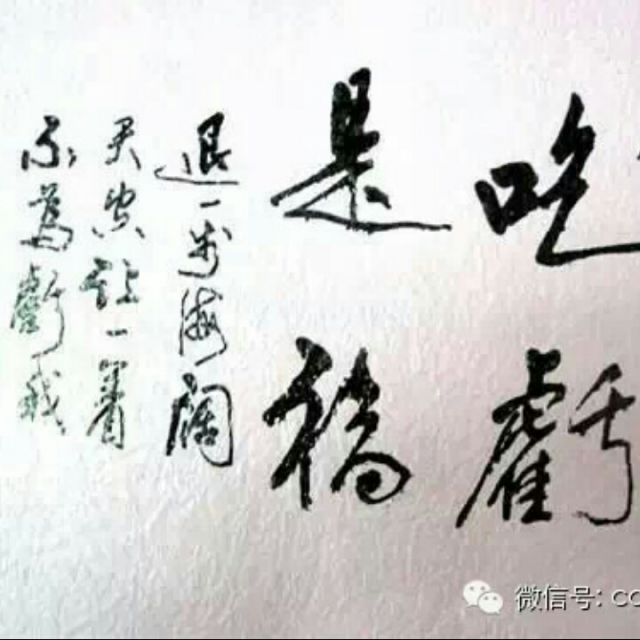 吃虧
是福
退一步海闊
天空讓一著
不為虧我
微信号: co